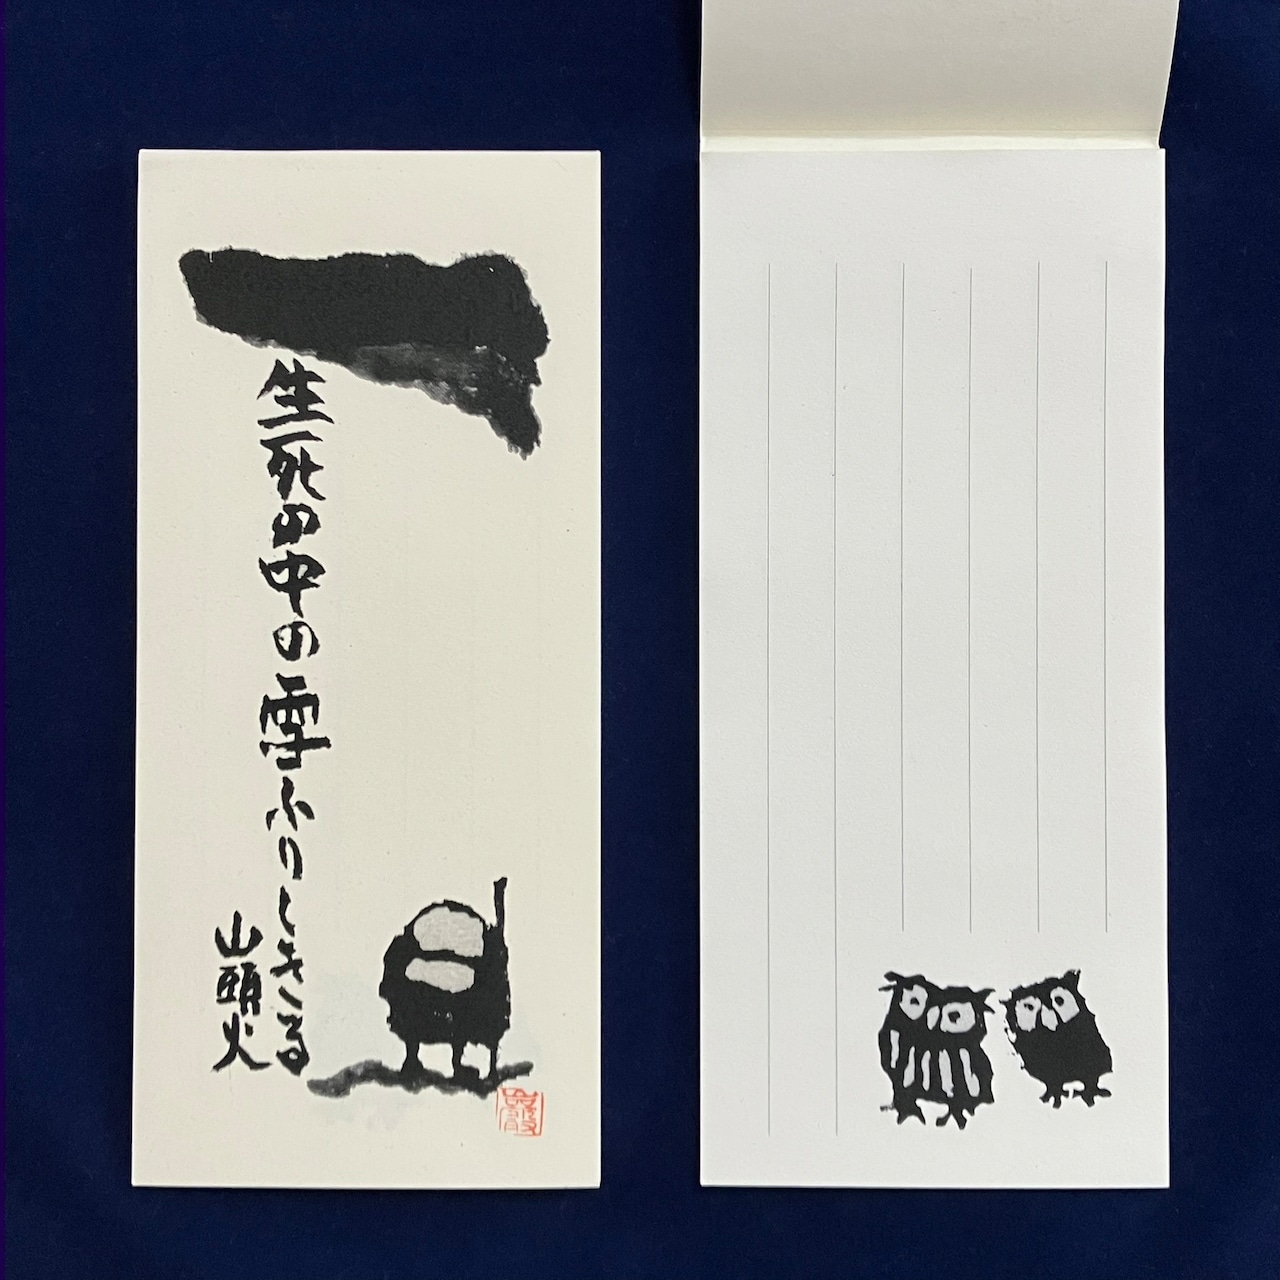 生死の中の雪ふりしきる
山頭火